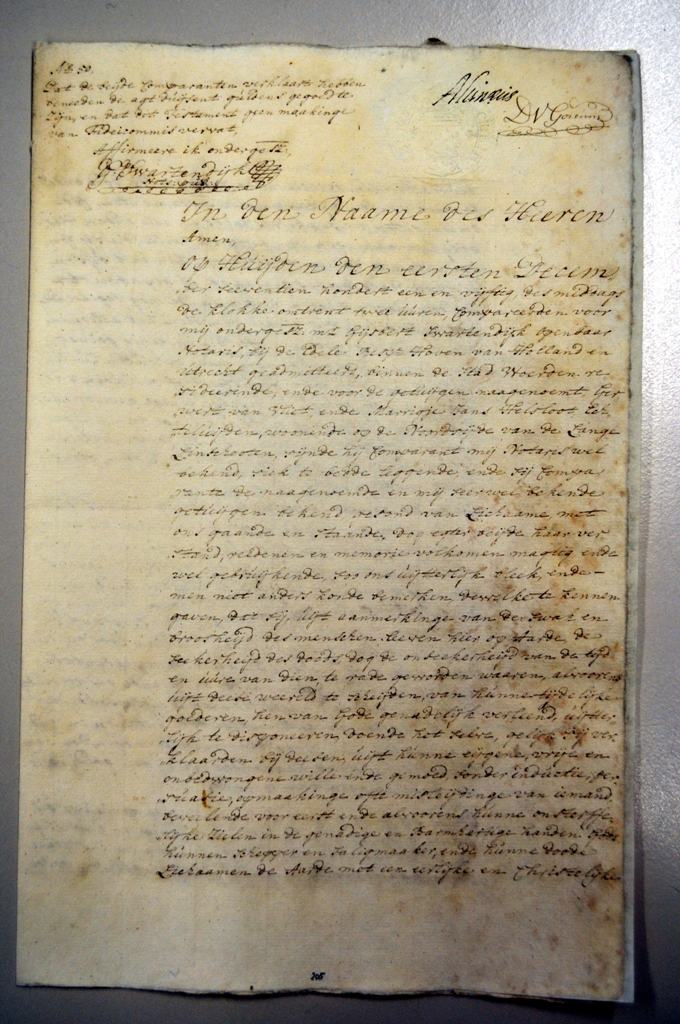 No 50.
Dat de beijde Comparanten verklaart hebben
beneeden de agt duijsent guldens gegoedt te
zijn, en dat dit Testament geen maakinge
van Fideicommis vervat,
Affirmeere ik onderget:
G: Swartendijk
Nots. publ.
In den Naame des Heeren
Amen,
Op Huijden den eersten Decem
ber seeventien hondert een en vijftig des middags
de klokke omtrent twee uuren, Compareerden voor
mij onderget: mr. Gijsbert Swartendijk openbaar
Notaris, bij de Edele Hoven van Holland en
Utrecht geadmitteert, binnen de Stad Woerden re
sideerende, ende voor de getuijgen naagenoemt, Ger
van Vliet, ende Marrigje Jans Helsloot Egt
telieijden, woonende op de Noordzijde van de Lange
Linschooten, zijnde hij Comparant mij Notaris wel
bekend, siek te bedde leggende, ende zij Compa
rante de naagenoemde en mij seer wel bekende
getuijgen bekend, gesond van Lichaame, met
ons gaande en staande, dog egter beijde haar ver
stand, reedenen en memorie volkomen magtig ende
wel gebruijkende, soo ons uijtterlijk bleek, ende
men niet anders konde bemerken, dewelke te kennen
gaven, dat sij, uijt aanmerkinge van de swak en
broosheijd des menschen Leeven hier op Aarde, de
seekerheijd des doods, dog de onseekerheijd van de tijd
en uure van dien, te rade geworden waaren, alvoorens
uijt deese weereld te scheijden, van hunne tijdelijke
goederen, hen van Gode genadelijk verleend, uijtter
lijk te disponeeren, doende het selve, gelijk zij ver
klaarden bij deesen, uijt hunne eijgene, vrije en
onbedwongene wille ende gemoed sonder inductie, per
suasie, opmaakinge ofte misleijdinge van iemand,
beveelende voor eerst ende alvoorens hunne onsterffe
lijke Zielen in de genadige en Barmhertige handen Gods
hunnen Schepper en Saligmaaker, ende hunne doode
Lichaamen de Aarde met een eerlijke en Christelijke